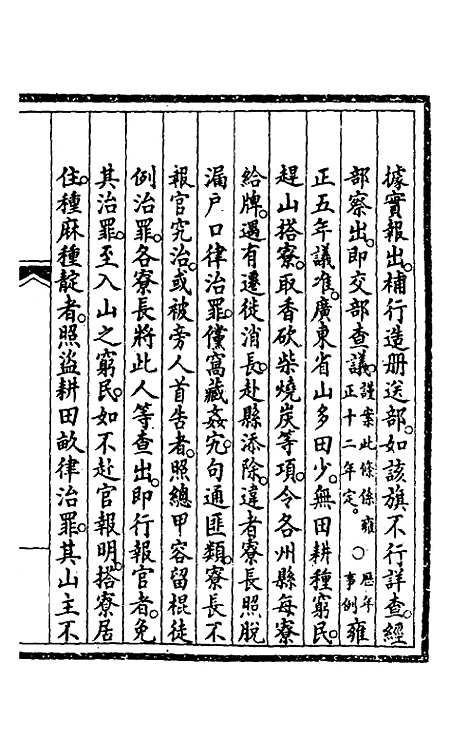 據實報出。補行造冊送部。如該旗不行詳查。經
部察出。卽交部查議。謹案此條係雍正十二年定。○歷年事例雍
正五年議准。廣東省山多田少。無田耕種窮民。
趕山搭寮。取香砍柴燒炭等項。令各州縣每寮
給牌。遇有遷徙消長。赴縣添除。違者寮長照脫
漏戶口律治罪。僅窩藏姦宄。句通匪類。寮長不
報官究治。或被旁人首告者。照總甲容留棍徒
例治罪。各寮長將此人等查出。卽行報官者。免
其治罪。至入山之窮民。如不赴官報明。搭寮居
住。種麻種靛者。照盜耕田畝律治罪。其山主不